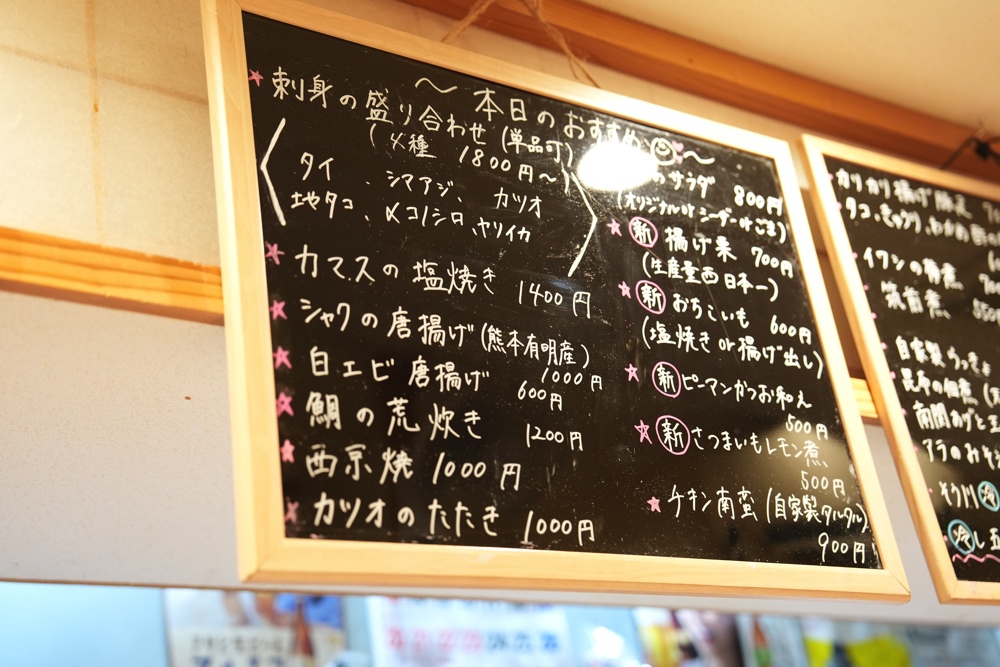 〜 本日のおすすめ 〜
刺身の盛り合わせ (単品可)
(〆種 1800円〜)
タイ 、シマアジ、 カツオ
地タコ、〆コノシロ、ヤリイカ
カマスの 塩焼き 1400円
シャクの唐揚げ(熊本有明産)
1000円
白エビ 唐揚げ 600円
鯛の荒炊き 1200円
西京焼 1000円
カツオのたたき 1000円
のサラダ 800円
(オリジナル or シーザー or ごま)
新 揚げ栗 700円
(生産量西日本一)
新 おちこいも 600円
(塩焼き or 揚げ出し)
新 ピーマンかつお和え
500円
新 さつまいもレモン煮
500円
チキン南蛮(自家製タルタル)
900円
カリカリ揚げ豚足
タコ、きゅうり、わかめ
イワシの
筑前煮
自家製
昆布の佃煮
南関あげと
アラのみそ
冷し五